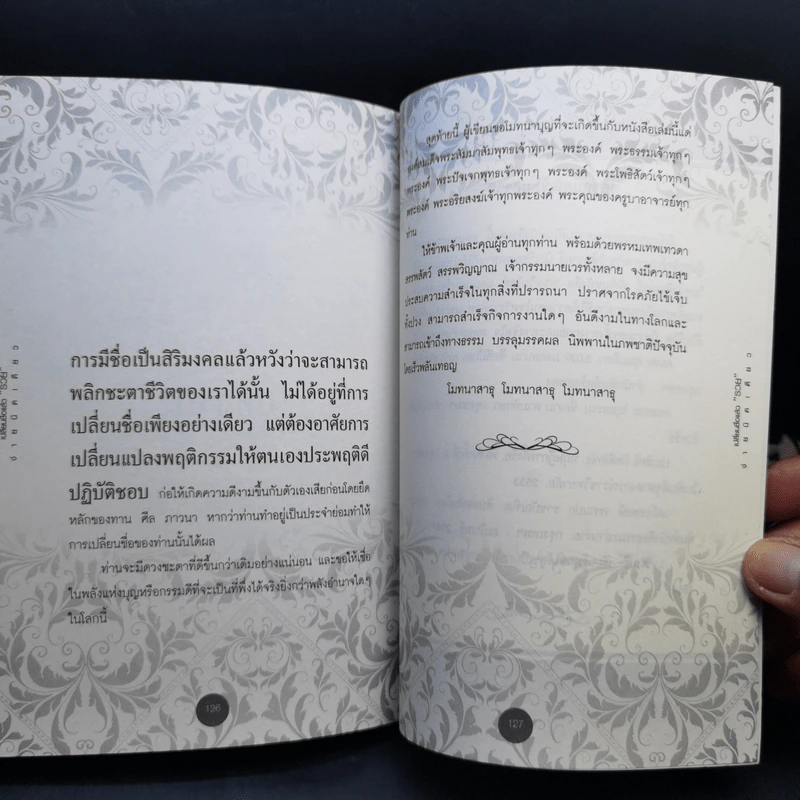 การมีชื่อเป็นสิริมงคลแล้วหวังว่าจะสามารถ
พลิกชะตาชีวิตของเราได้นั้น ไม่ได้อยู่ที่การ
เปลี่ยนชื่อเพียงอย่างเดียว แต่ต้องอาศัยการ
เปลี่ยนแปลงพฤติกรรมให้ตนเองประพฤติดี
ปฏิบัติชอบ ก่อให้เกิดความดีงามขึ้นกับตัวเองเสียก่อนโดยยึด
หลักของทาน ศีล ภาวนา หากว่าท่านทำอยู่เป็นประจำย่อมทำให้
การเปลี่ยนชื่อของท่านนั้นได้ผล
ท่านจะมีดวงชะตาที่ดีขึ้นกว่าเดิมอย่างแน่นอน และขอให้เชื่อ
ในพลังแห่งบุญหรือกรรมดีที่จะเป็นที่พึ่งได้จริงยิ่งกว่าพลังอำนาจใดๆ
ในโลกนี้
126
สุดท้ายนี้ ผู้เขียนขอโมทนาบุญที่จะเกิดขึ้นกับหนังสือเล่มนี้แด่
องค์สมเด็จพระสัมมาสัมพุทธเจ้าทุกๆ พระองค์ พระธรรมเจ้าทุกๆ
พระองค์ พระปัจเจกพุทธเจ้าทุกๆ พระองค์ พระโพธิสัตว์เจ้าทุกๆ
พระองค์ พระอริยสงฆ์เจ้าทุกพระองค์ พระคุณของครูบาอาจารย์ทุก
ท่าน
ให้ข้าพเจ้าและคุณผู้อ่านทุกท่าน พร้อมด้วยพรหมเทพเทวดา
สรรพสัตว์ สรรพวิญญาณ เจ้ากรรมนายเวรทั้งหลาย จงมีความสุข
ประสบความสำเร็จในทุกสิ่งที่ปรารถนา ปราศจากโรคภัยไข้เจ็บ
ทั้งปวง สามารถสำเร็จกิจการงานใดๆ อันดีงามในทางโลกและ
สามารถเข้าถึงทางธรรม บรรลุมรรคผล นิพพานในภพชาติปัจจุบัน
โดยเร็วพลันเทอญ
โมทนาสาธุ โมทนาสาธุ โมทนาสาธุ
127